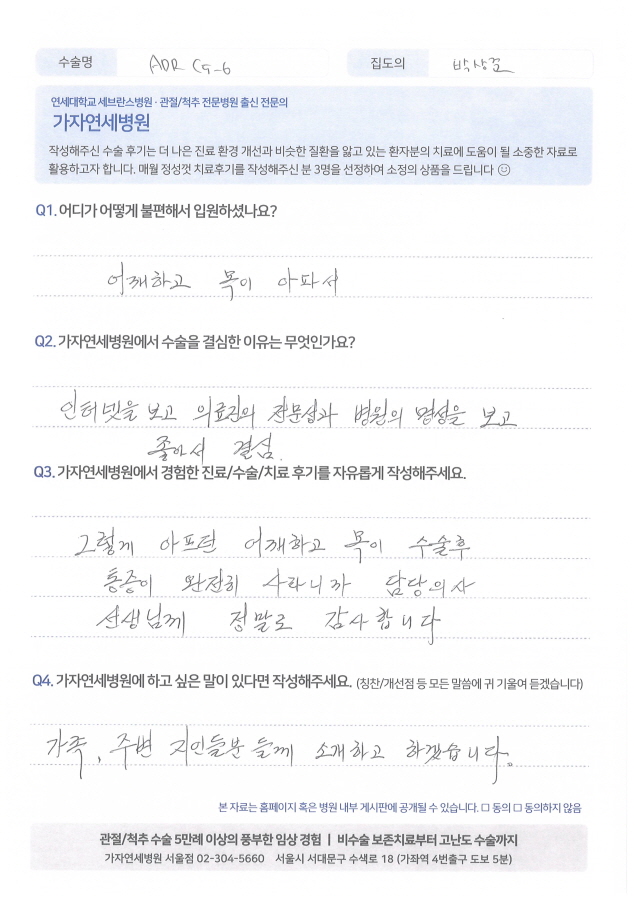 수술명 ADR C5-6 집도의 박상준
연세대학교 세브란스병원 · 관절/척추 전문병원 출신 전문의
가자연세병원
작성해주신 수술 후기는 더 나은 진료 환경 개선과 비슷한 질환을 앓고 있는 환자분의 치료에 도움이 될 소중한 자료로
활용하고자 합니다. 매월 정성껏 치료후기를 작성해주신 분 3명을 선정하여 소정의 상품을 드립니다 ☺
Q1. 어디가 어떻게 불편해서 입원하셨나요?
어깨하고 목이 아파서
Q2. 가자연세병원에서 수술을 결심한 이유는 무엇인가요?
인터넷을 보고 의료진의 전문성과 병원의 명성을 보고
좋아서 결심.
Q3. 가자연세병원에서 경험한 진료/수술/치료 후기를 자유롭게 작성해주세요.
그렇게 아프던 어깨하고 목이 수술후
통증이 완전히 사라니까 담당의사
선생님께 정말로 감사합니다
Q4. 가자연세병원에 하고 싶은 말이 있다면 작성해주세요. (칭찬/개선점 등 모든 말씀에 귀 기울여 듣겠습니다)
가족, 주변 지인들분들께 소개하고 하겠습니다.
본 자료는 홈페이지 혹은 병원 내부 게시판에 공개될 수 있습니다. □ 동의 □ 동의하지 않음
관절/척추 수술 5만례 이상의 풍부한 임상 경험 | 비수술 보존치료부터 고난도 수술까지
가자연세병원 서울점 02-304-5660 서울시 서대문구 수색로 18 (가좌역 4번출구 도보 5분)